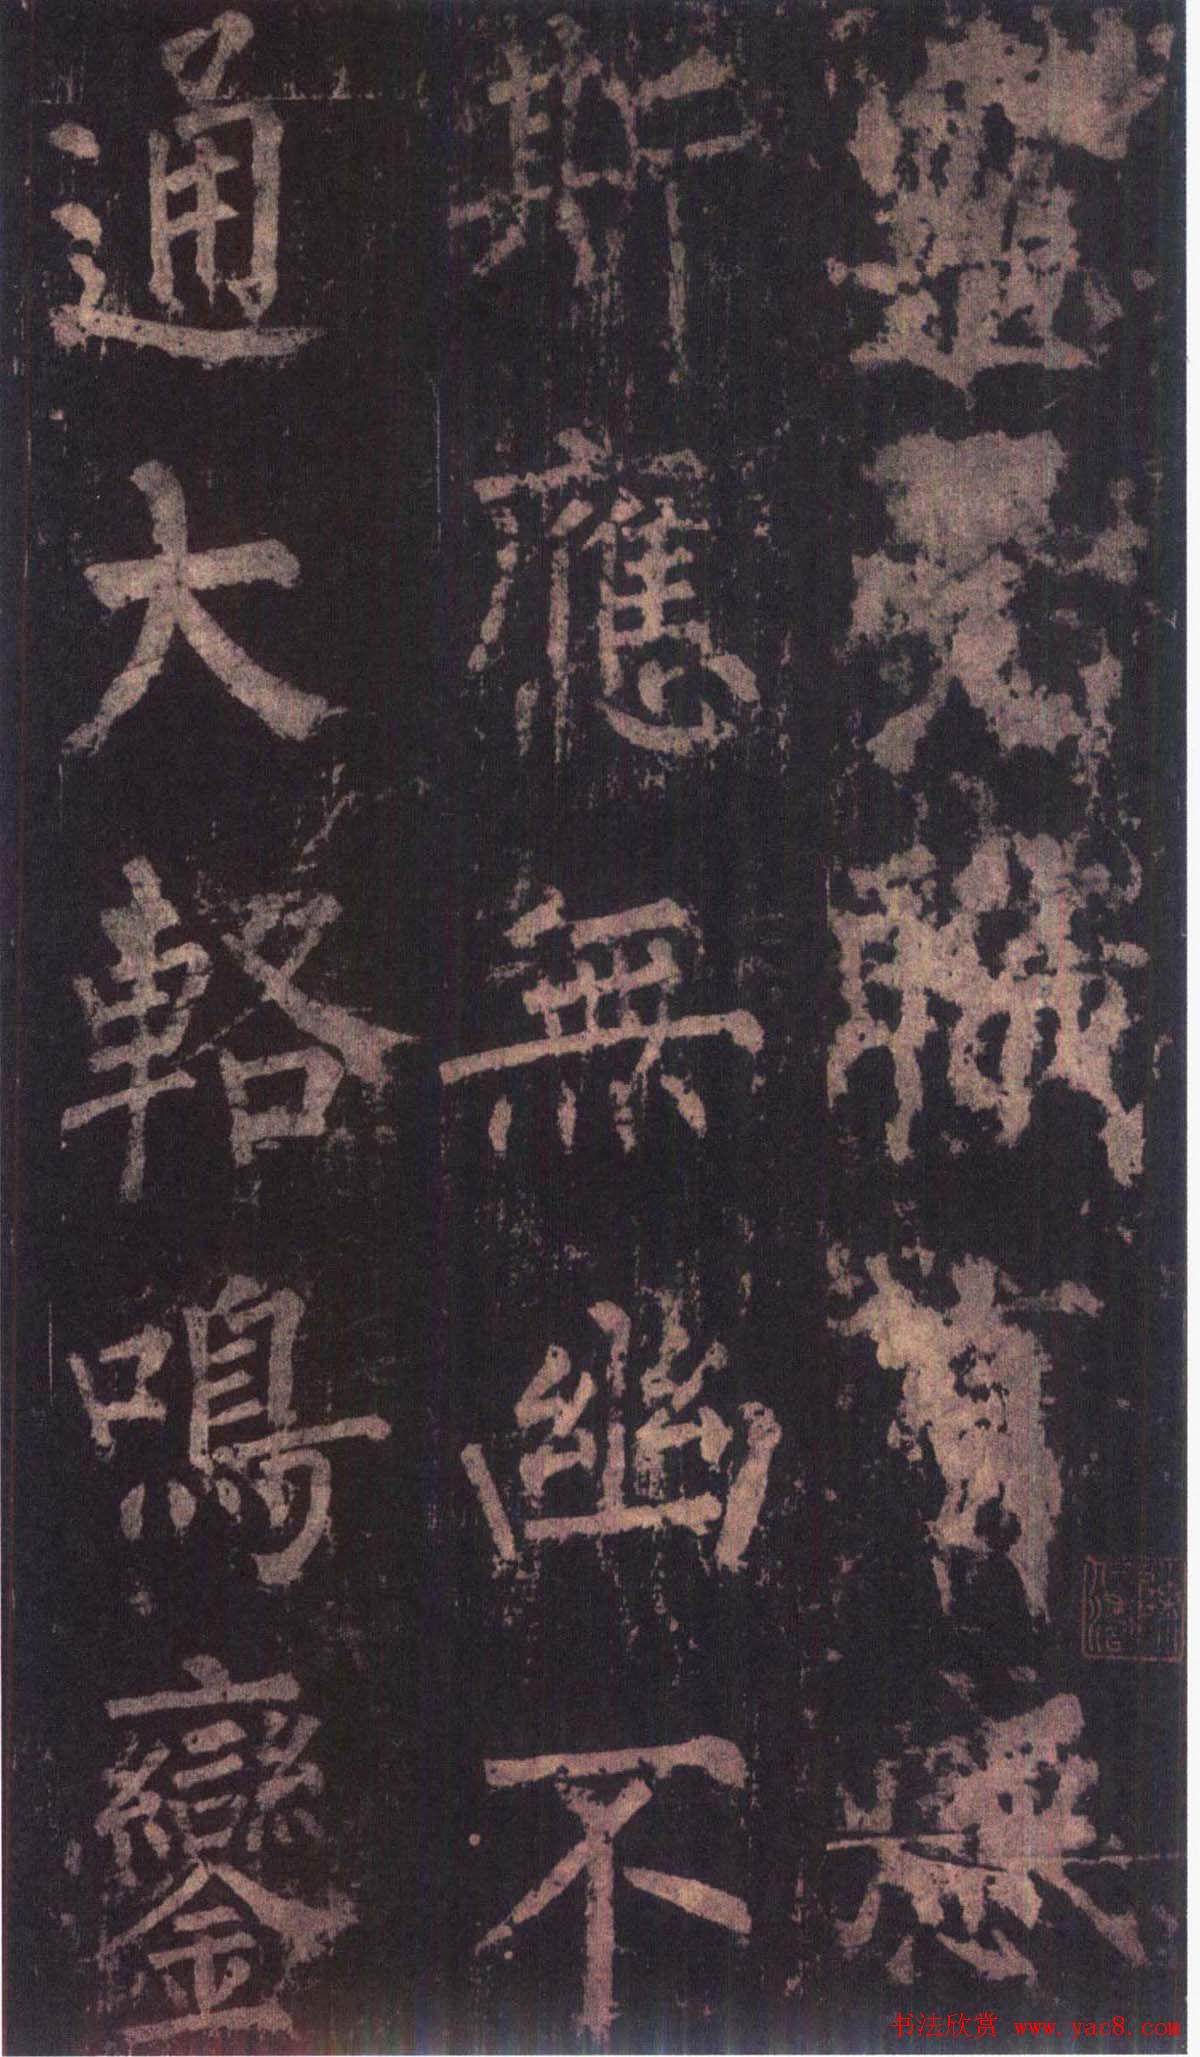 靈職無
斯應無幽不
通大輅鳴鑾
书法欣赏 www.yac8.com